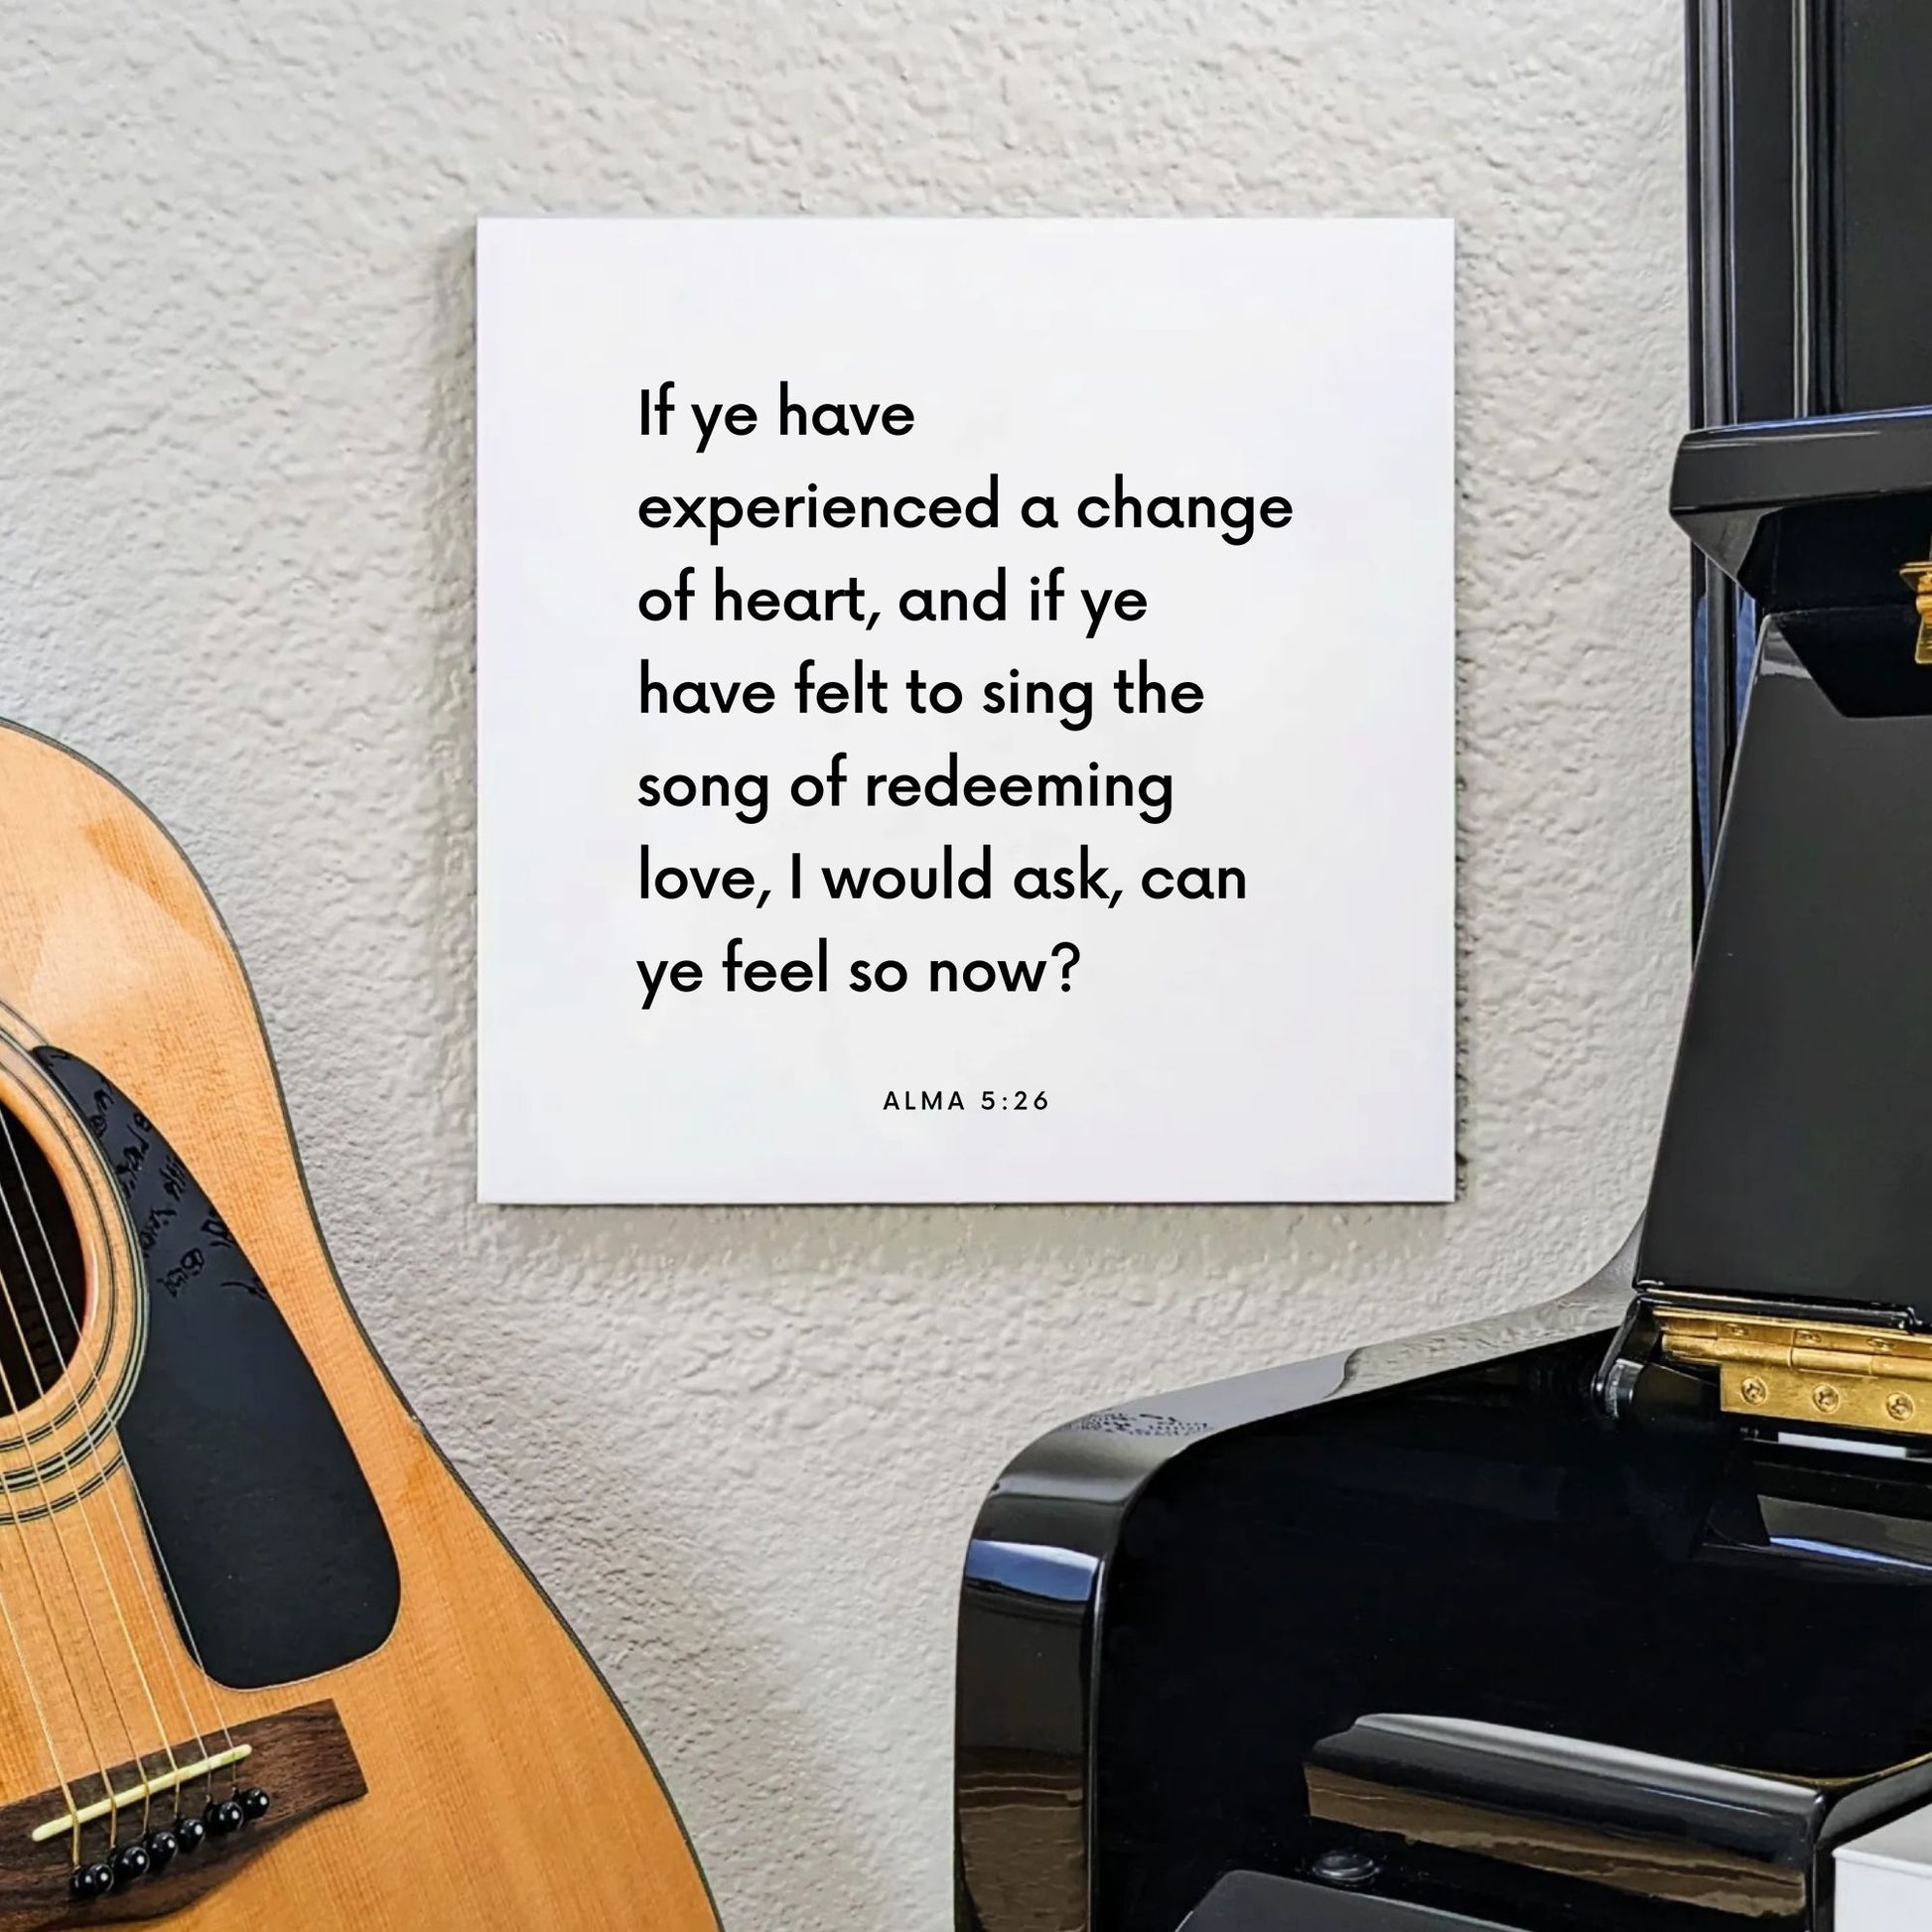 If ye have
experienced a change
of heart, and if ye
have felt to sing the
song of redeeming
love, I would ask, can
ye feel so now?
ALMA 5:26